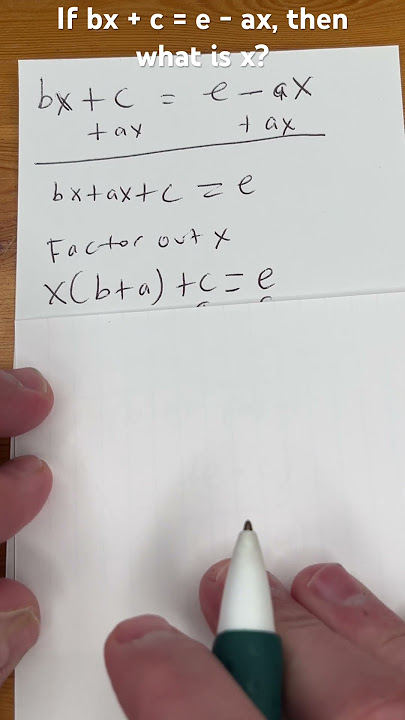 If bx + c = e - ax, then
what is x?
bx + c = e - ax
+ ax + ax
bx + ax + c = e
Factor out x
x(b+a) + c = e